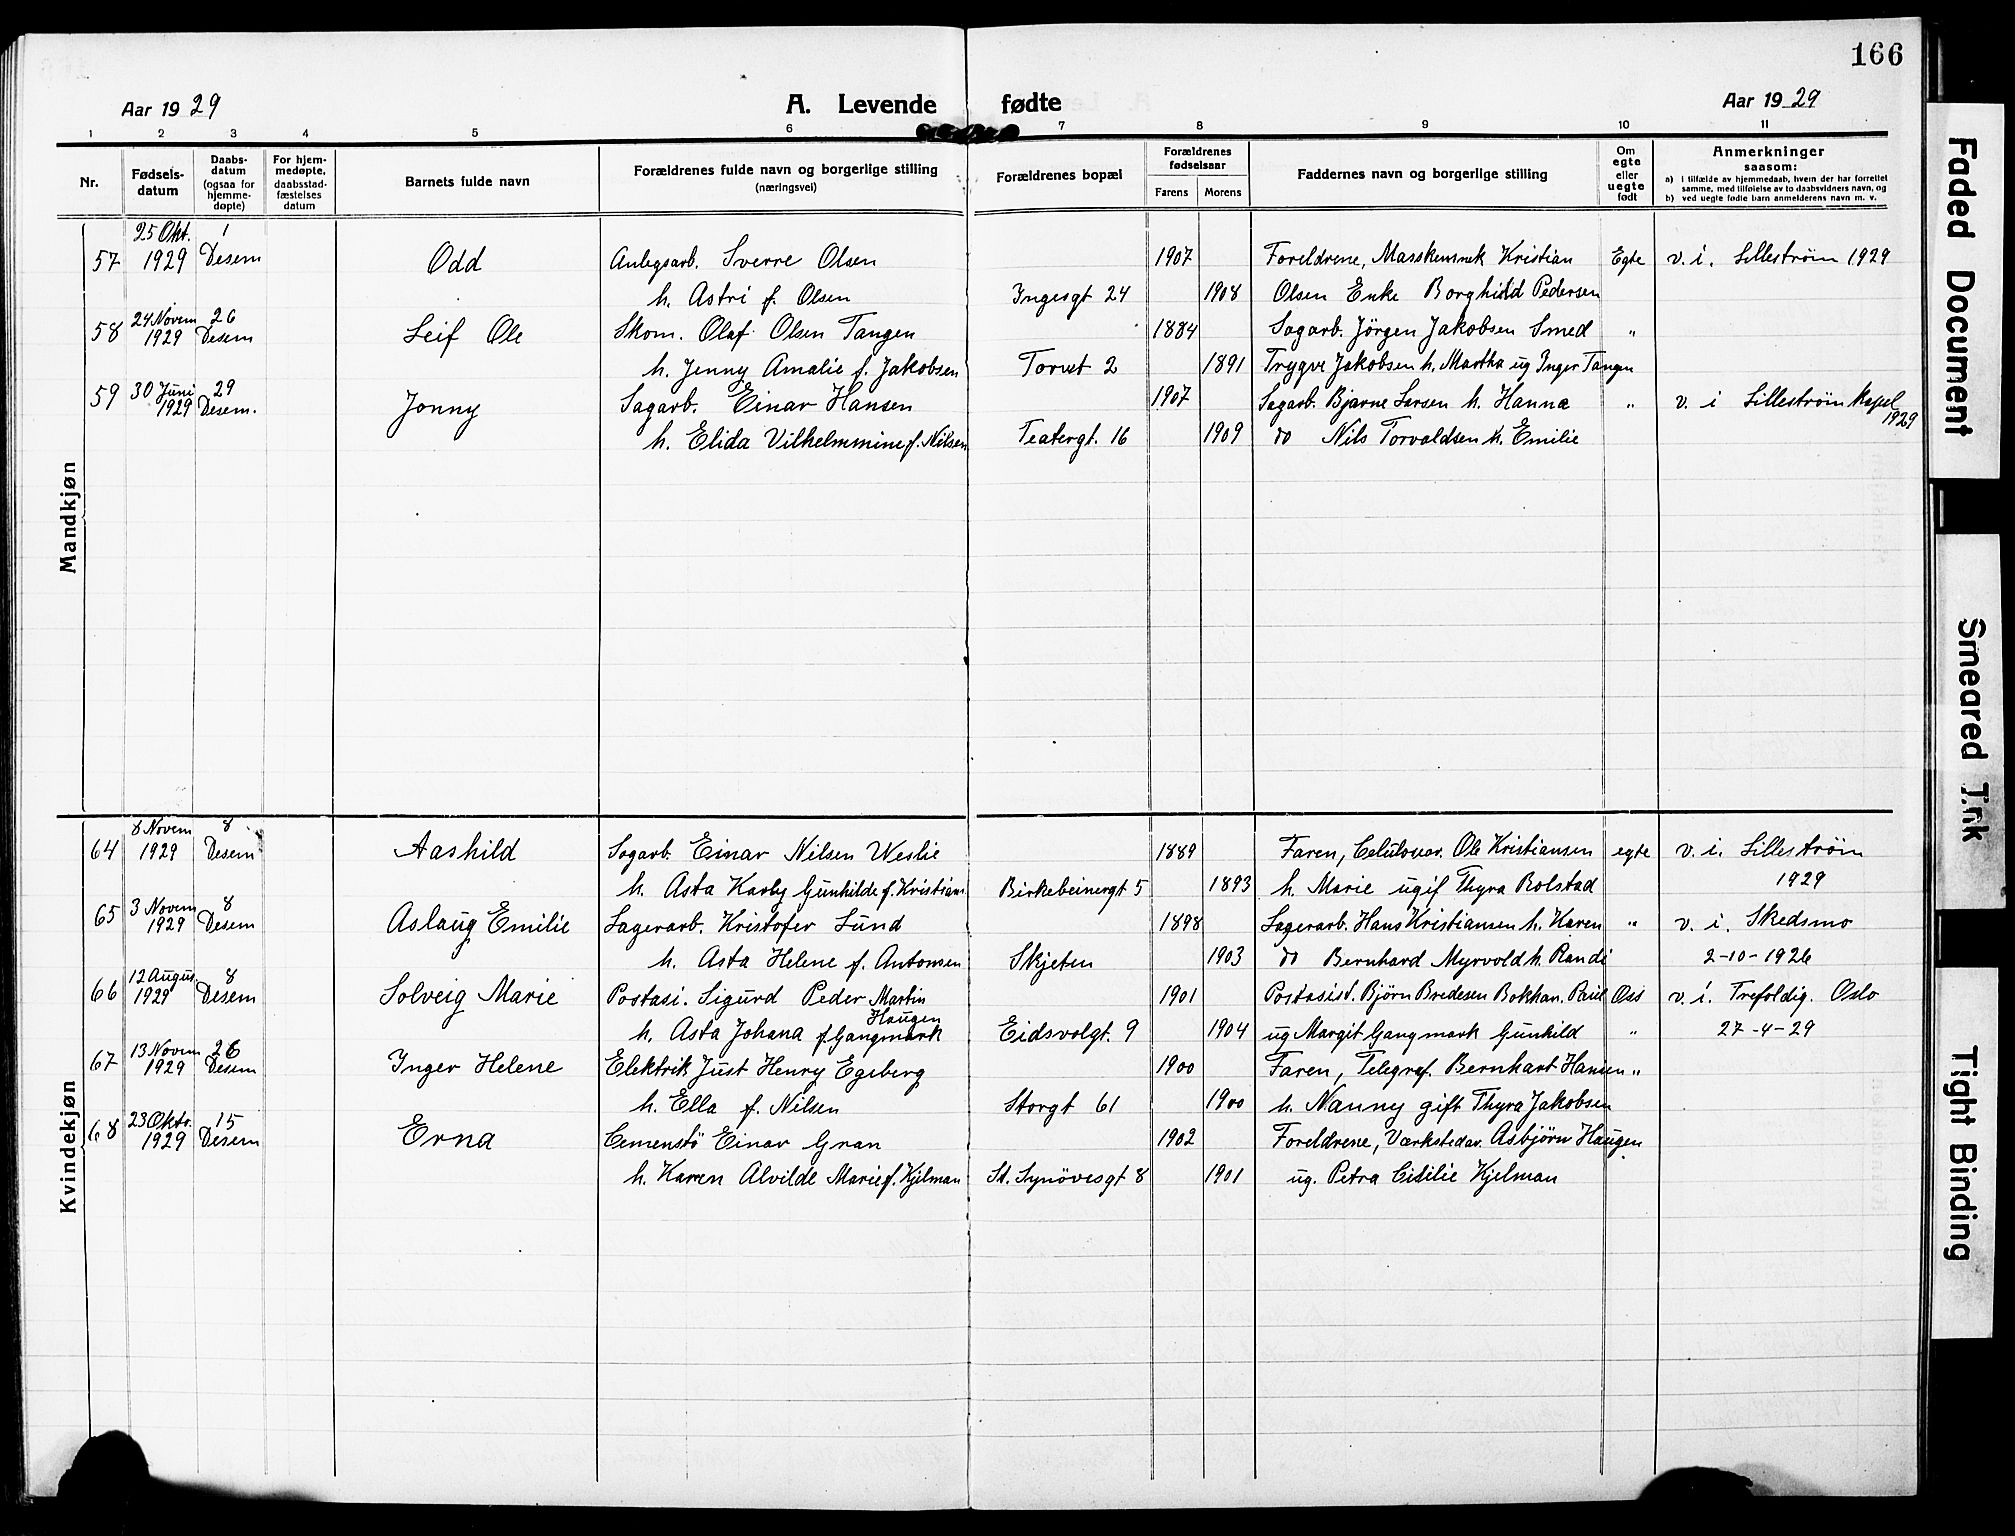 166
Aar 1929
A. Levende fødte
Aar 1929
1 2 3 4 5 6 7 8 9 10 11
Nr.
Fødsels-
datum
Daabs-
datum
(ogsaa for
hjemme-
døpte)
For hjem-
medøpte,
daabsstad-
fæstelses
datum
Barnets fulde navn
Forældrenes fulde navn og borgerlige stilling
(næringsvei)
Forældrenes bopæl
Forældrenes
fødselsaar
Farens Morens
Faddernes navn og borgerlige stilling
Om
egte
eller
uegte
født
Anmerkninger
saasom:
a) i tilfælde av hjemmedaab, hvem der har forrettet
samme, med tilføielse av to daabsvidners navn, og
b) ved uegte fødte barn anmelderens navn m. v.
Mandkjøn
25 Okt. 1
57 1929 Desem Odd Anlegsarb. Sverre Olsen 1907 Foreldrene, Kristian Egte v. i. Lillestrøm 1929
h. Astri f. Olsen Ingesgt 24 1908 Olsen Enke Borghild Pedersen
24 Novem 26
58 1929 Desem Leif Ole Skom. Olaf Olsen Tangen 1884 Sagarb. Jörgen Jakobsen Smed "
h. Jenny Amalie f. Jakobsen Torvet 2 1891 Trygve Jakobsen h. Martha ug Inger Tangen
30 Juni 29
59 1929 Desem. Jonny Sagarb. Einar Hansen 1907 Sagarb. Bjarne Larsen h. Hanna " v. i Lillestrøm Kapel
1929
h. Elida Vilhelmmine f. Nilsen Teatergt. 16 1909 do Nils Torvaldsen h. Emilie
Kvindekjøn
8 Novem 8
64 1929 Desem Aashild Sagarb. Einar Nilsen Weslie 1889 Faren, Ole Kristiansen egte v. i. Lillestrøm
h. Asta Karby Gunhilde f. Kristians Birkebeinergt 5 1893 h. Marie ugif Thyra Rolstad 1929
3 Novem 8
65 1929 Desem Aslaug Emilie Lagerarb. Kristofer Lund 1898 Lagerarb. Hans Kristiansen h. Karen " v. i. Skedsmo
h. Asta Helene f. Antonsen Skjeten 1903 do Bernhard Myrvold h. Randi 2-10-1926
12 Augus 8
66 1929 Desem Solveig Marie Postasi. Sigurd Peder Martin 1901 Postasist. Björn Bredesen Bokhan. Paul Oss v. i. Trefoldig. Oslo
Haugen
h. Asta Johana f. Gangmark Eidsvolgt. 9 1904 ug Margit Gangmark Gunhild " 27-4-29
13 Novem 26
67 1929 Desem Inger Helene Elektrik Just Henry Egeberg 1900 Faren, Telegraf. Bernhart Hansen "
h. Ella f. Nilsen Storgt 61 1900 h. Nanny gift Thyra Jakobsen
23 Oktr. 15
68 1929 Desem Erna Cemenstö Einar Gran 1902 Foreldrene, Værkstedar. Asbjørn Haugen
h. Karen Alvilde Marie f. Kjelman St. Synövesgt 8 1901 ug. Petra Cisilie Kjelman
Faded Document
Smeared Ink
Tight Binding